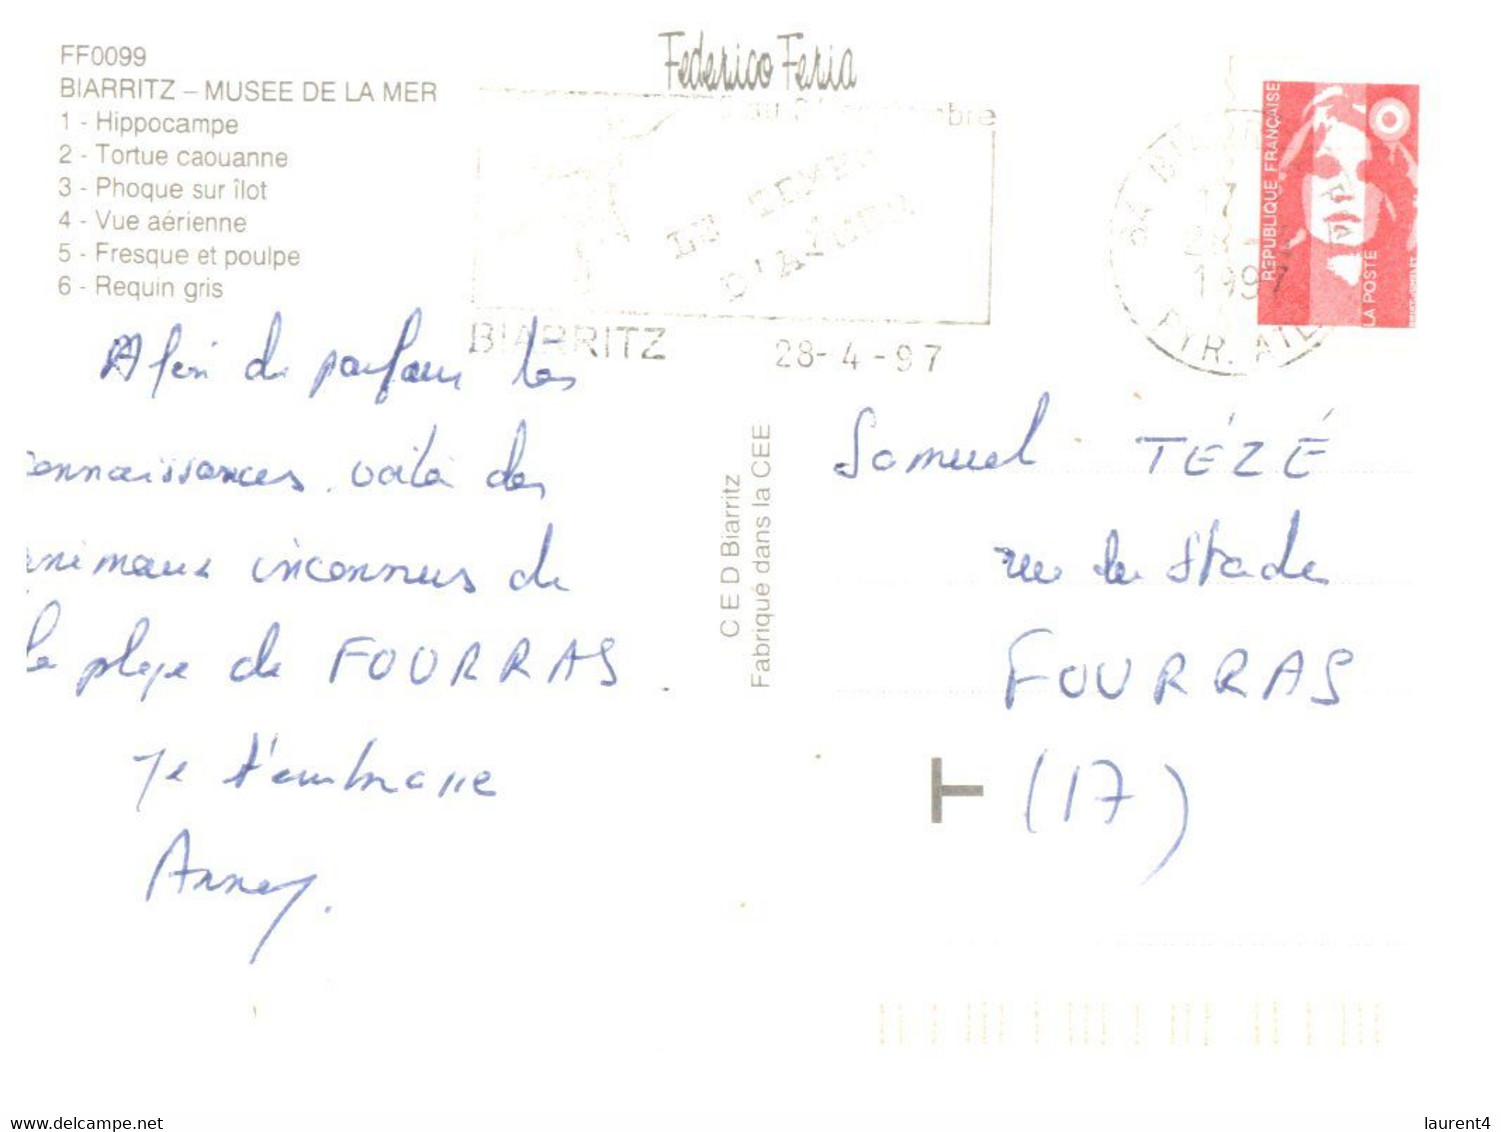 FF0099
BIARRITZ – MUSEE DE LA MER
1 - Hippocampe
2 - Tortue caouanne
3 - Phoque sur îlot
4 - Vue aérienne
5 - Fresque et poulpe
6 - Requin gris
Federico Feria
BIARRITZ
28-4-97
17
1997
PYR. ATL
REPUBLIQUE FRANÇAISE
LA POSTE
Afin de parfaire tes
connaissances, voilà des
animaux inconnus de
la plage de FOURRAS.
Je t'embrasse
C E D Biarritz
Fabriqué dans la CEE
Samuel TÉZÉ
rue du Stade
FOURRAS
T (17)
www.delcampe.net
laurent4